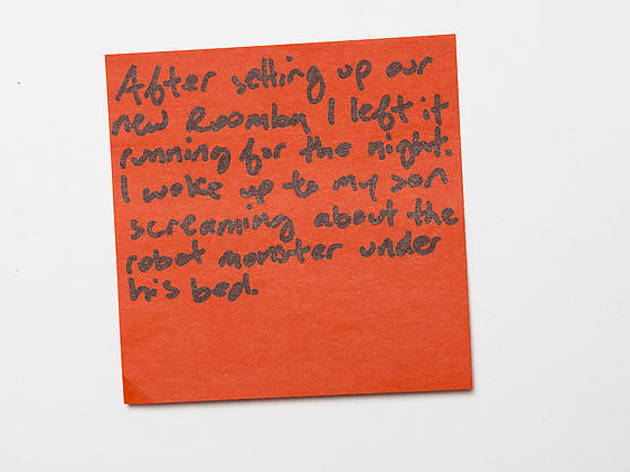 After setting up our
new Roomba I left it
running for the night.
I woke up to my son
screaming about the
robot monster under
his bed.